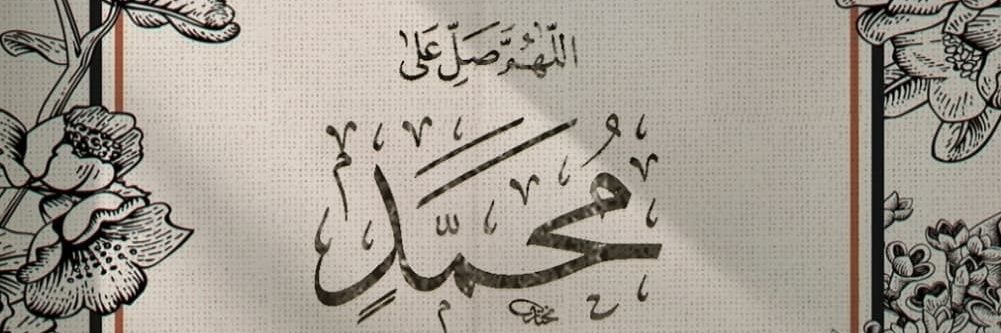 اللّٰهُمَّ صَلِّ عَلىٰ
مُحَمَّدٍ